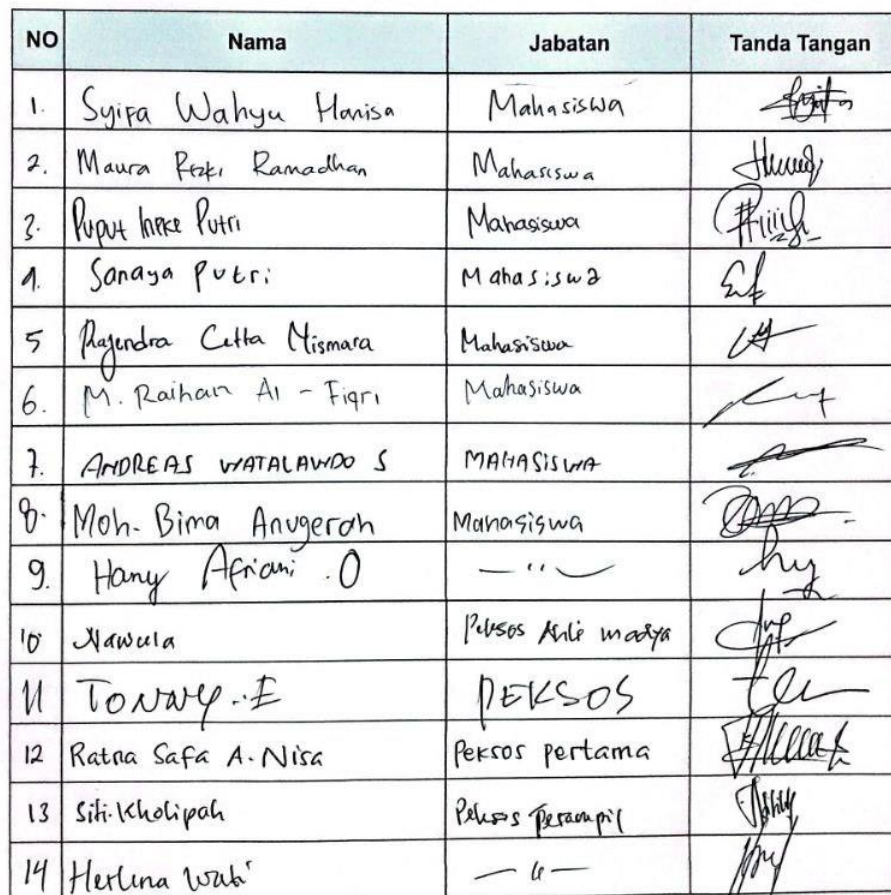 NO Nama Jabatan Tanda Tangan
1. Syifa Wahyu Hanisa Mahasiswa
2. Maura Rizki Ramadhan Mahasiswa
3. Puput Inske Putri Mahasiswa
4. Sanaya Putri Mahasiswa
5 Rajendra Cetta Mismara Mahasiswa
6. M. Raihan Al - Fiqri Mahasiswa
7. ANDREAS WATALAWDO S MAHASISWA
8. Moh. Bima Anugerah Mahasiswa
9. Hany Afriani . O — " —
10 Nawula Peksos Ahli madya
11 TONNY. E PEKSOS
12 Ratna Safa A. Nisa Peksos pertama
13 Siti. Kholipah Peksos Terampil
14 Herlina Wati — " —